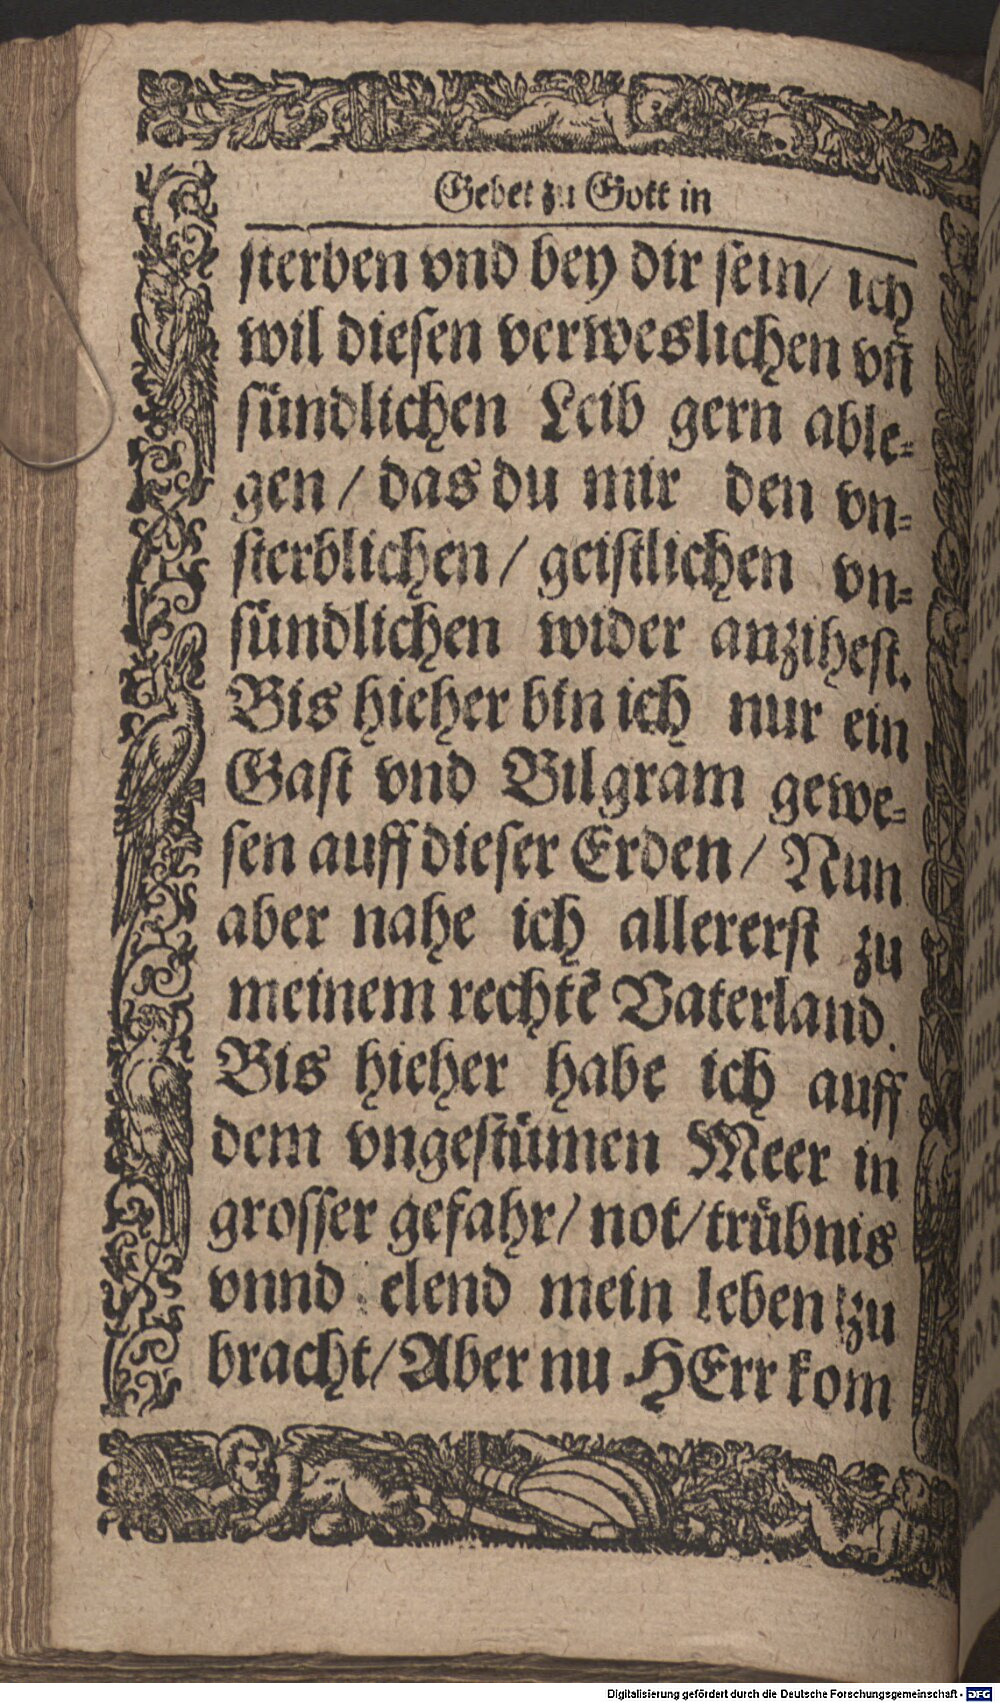 Gebet zu Gott in
sterben vnd bey dir sein/ ich
wil diesen verweslichen vñ
sündlichen Leib gern able-
gen / das du mir den vn-
sterblichen/ geistlichen vn-
sündlichen wider anzihest.
Bis hieher bin ich nur ein
Gast vnd Bilgram gewe-
sen auff dieser Erden/ Nun
aber nahe ich allererst zu
meinem rechtẽ Vaterland.
Bis hieher habe ich auff
dem vngestümen Meer in
grosser gefahr/ not/ trübnis
vnnd elend mein leben zu
bracht/ Aber nu HErr kom
Digitalisierung gefördert durch die Deutsche Forschungsgemeinschaft - DFG